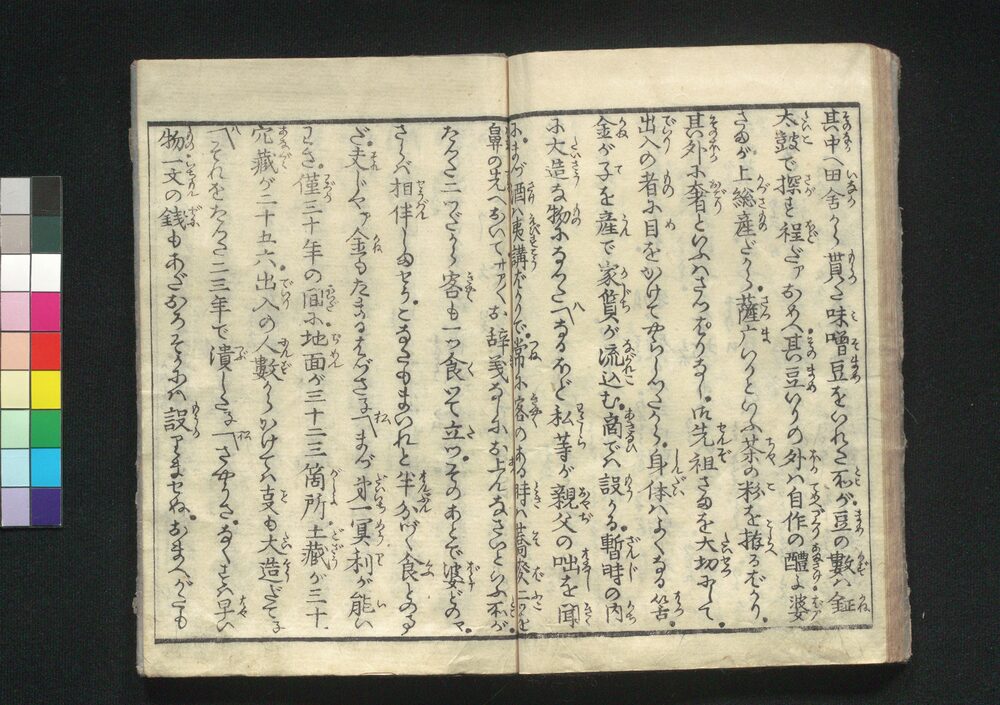 其中へ田舎から貰た味噌豆をいれた所が豆の数は鉦
太鼓で探す程だアおめへ其豆いりの外は自作の醴よ婆
さまが上総産だから薩广いりといふ茶の粉を拵るばかり
其外に奢といふはさつぱりなし御先祖さまを大切にして
出入の者に目をかけてやらしつたから身体はよくなる筈
金が子を産で家質が流込む商では設かる暫時の内
に大造な物になつた八なるほど私等が親父の咄を聞
にまづ酒は夷講ばかりで常に客のある時は蕎麦二ツを
鼻の先へおいてサアくお辞義なしにお上んなさいといふ所が
たつた二ツだから客も一ツ食て立つそのあとで婆どのや
さらば相伴しませうこなたもまいれと半分づゝ食しつたさうだ
夫じやア金もたまるはづさネ松まづ第一冥利が能い
わさ僅三十年の間に地面が三十三箇所土蔵が三十
穴蔵が二十五六出入の人数からかけては㕝も大造だてネ
八それをたつた二三年で潰したネ松さやうさなくすは早い
物一文の銭もあだおろそかには設りませぬおまへがたも